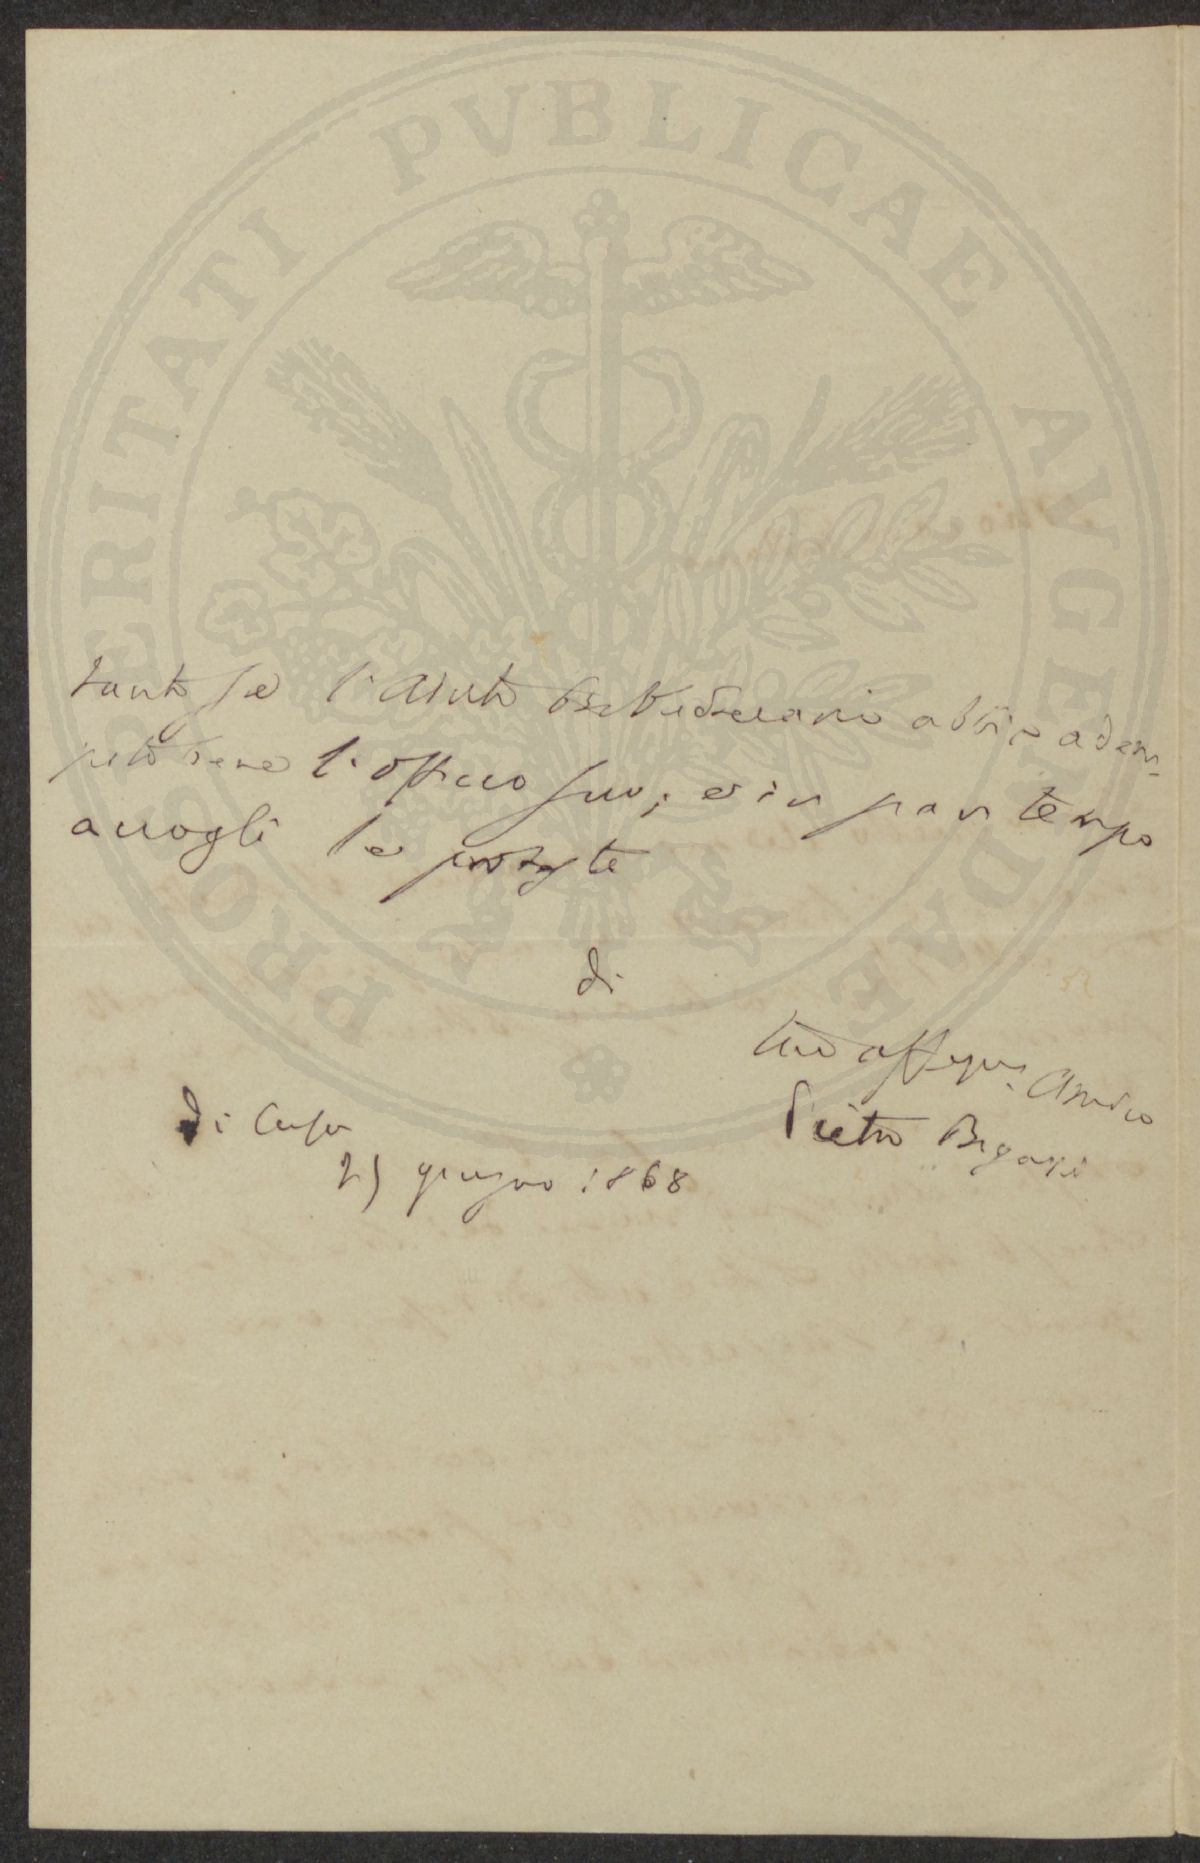 PROSPERITATI PVBLICAE AVGENDAE
tanto se l'Aiuto Bibliotecario abbia adem-
pito bene l'officio suo; e in pari tempo
accogli le proteste
di
tuo affezmo. Amico
Pietro Bigazzi
Di Casa
25 giugno 1868